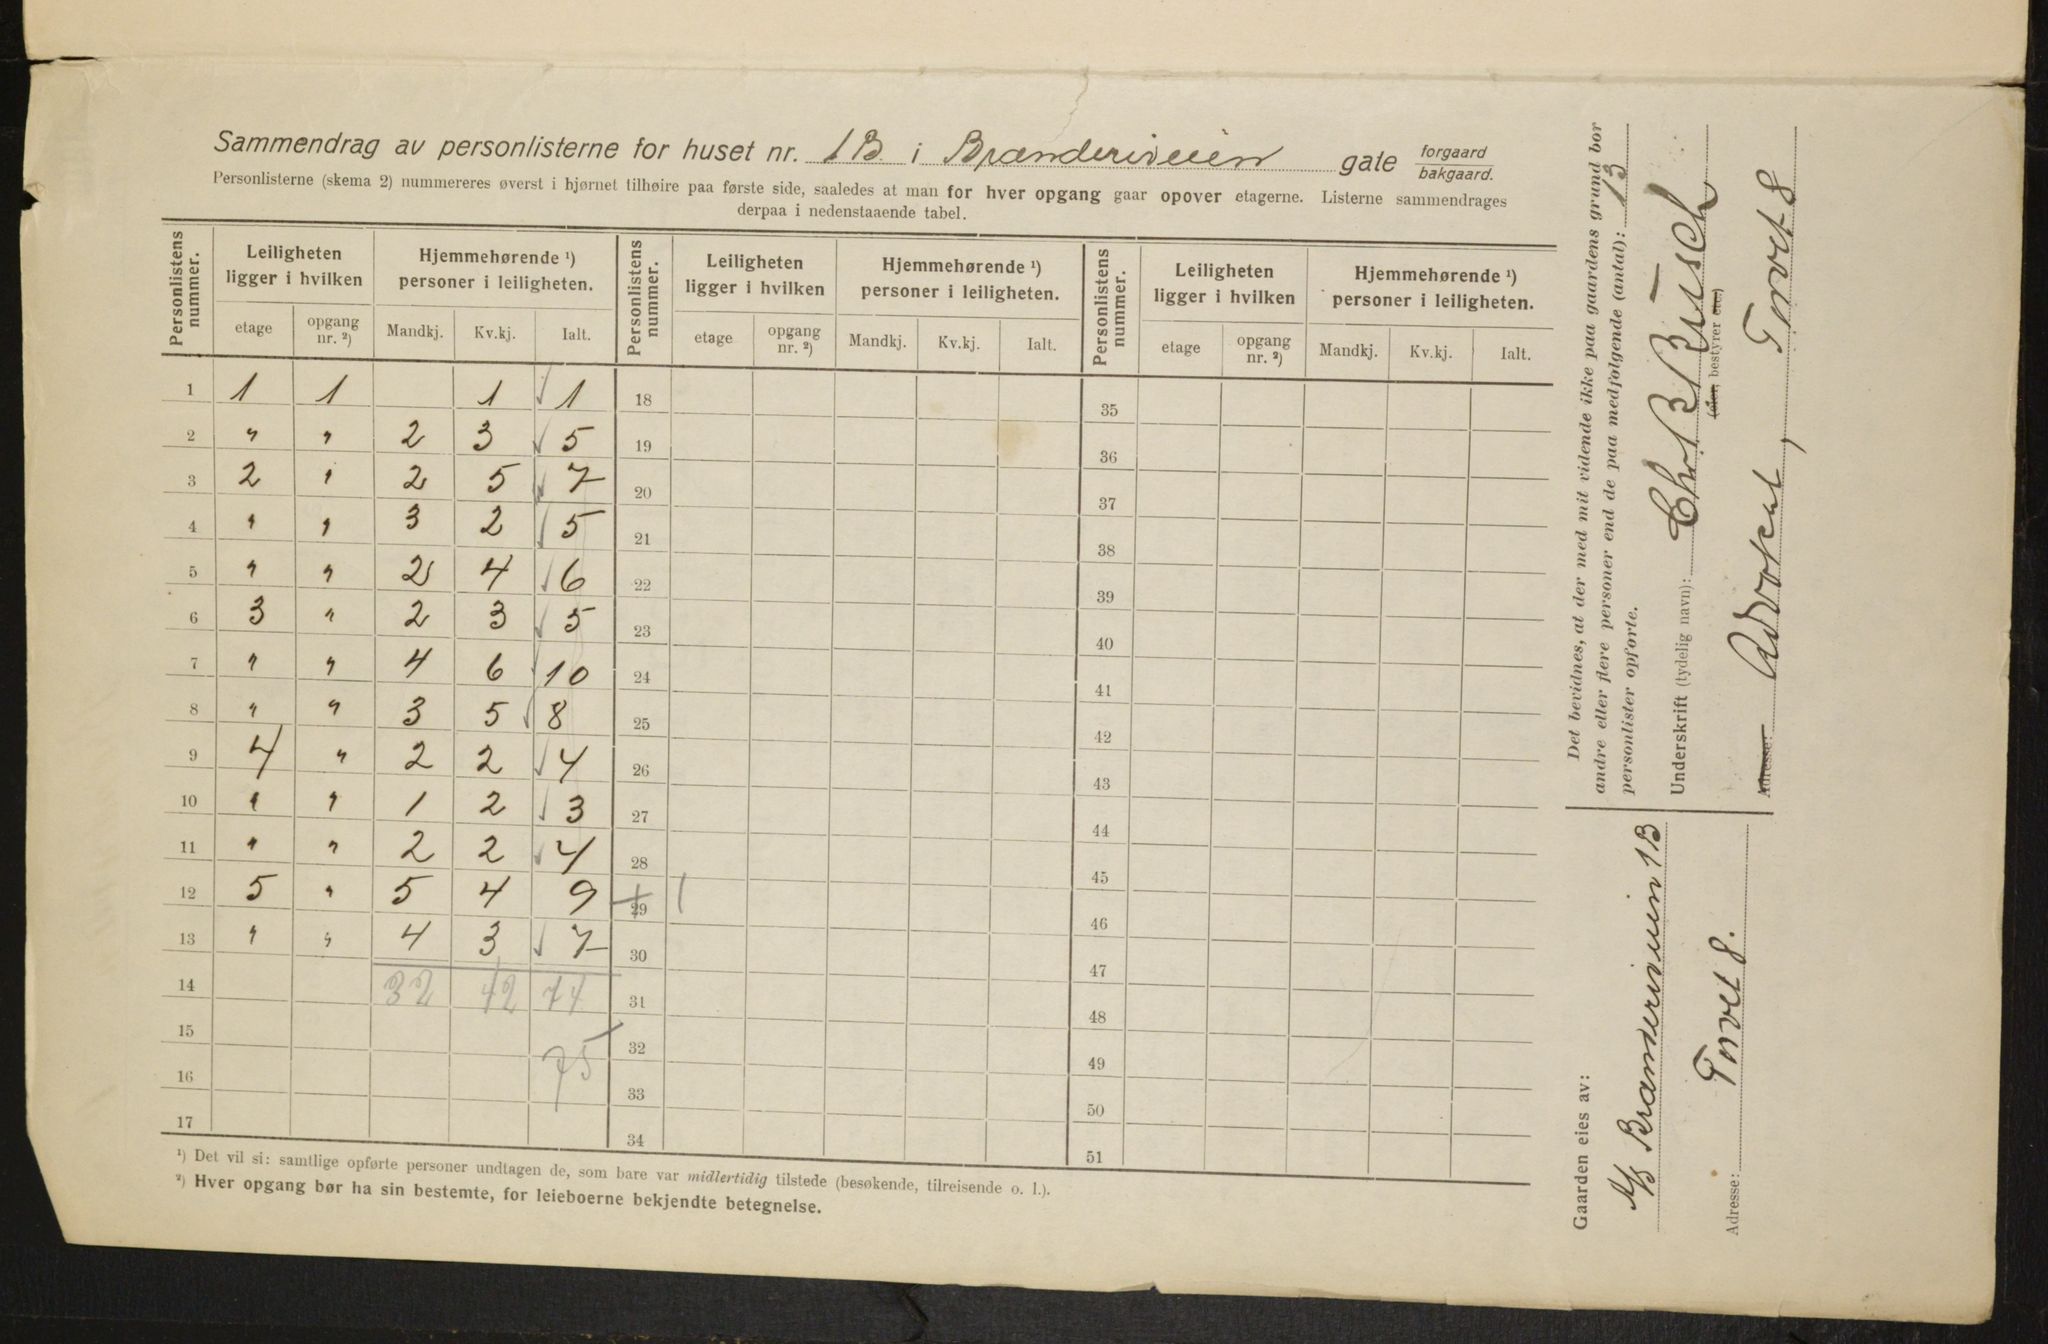 Sammendrag av personlisterne for huset nr. 1B. i Brænderiveien gate forgaard bakgaard.
Personlisterne (skema 2) nummereres øverst i hjørnet tilhøire paa første side, saaledes at man for hver opgang gaar opover etagerne. Listerne sammendrages
derpaa i nedenstaaende tabel.
Personlistens nummer. Leiligheten ligger i hvilken Hjemmehørende ¹) personer i leiligheten. Personlistens nummer. Leiligheten ligger i hvilken Hjemmehørende ¹) personer i leiligheten. Personlistens nummer. Leiligheten ligger i hvilken Hjemmehørende ¹) personer i leiligheten.
etage opgang nr. ²) Mandkj. Kv.kj. Ialt. etage opgang nr. ²) Mandkj. Kv.kj. Ialt. etage opgang nr. ²) Mandkj. Kv.kj. Ialt.
1 1 1 1 √ 1 18 35
2 " " 2 3 √ 5 19 36
3 2 " 2 5 √ 7 20 37
4 " " 3 2 √ 5 21 38
5 " " 2 4 √ 6 22 39
6 3 " 2 3 √ 5 23 40
7 " " 4 6 √ 10 24 41
8 " " 3 5 √ 8 25 42
9 4 " 2 2 √ 4 26 43
10 " " 1 2 √ 3 27 44
11 " " 2 2 √ 4 28 45
12 5 " 5 4 9 + 29 1 46
13 " " 4 3 √ 7 30 47
14 32 42 74 31 48
15 32 49
16 75 33 50
17 34 51
¹) Det vil si: samtlige opførte personer undtagen de, som bare var midlertidig tilstede (besøkende, tilreisende o. l.).
²) Hver opgang bør ha sin bestemte, for leieboerne bekjendte betegnelse.
Det bevidnes, at der med mit vidende ikke paa gaardens grund bor
andre eller flere personer end de paa medfølgende (antal): 13
personlister opførte.
Underskrift (tydelig navn): Chr. B. Büsch
(eier, bestyrer etc.)
Adresse: Advokat, Torvet 8
Gaarden eies av:
A/S Brænderiveien 1B
Adresse: Torvet 8.